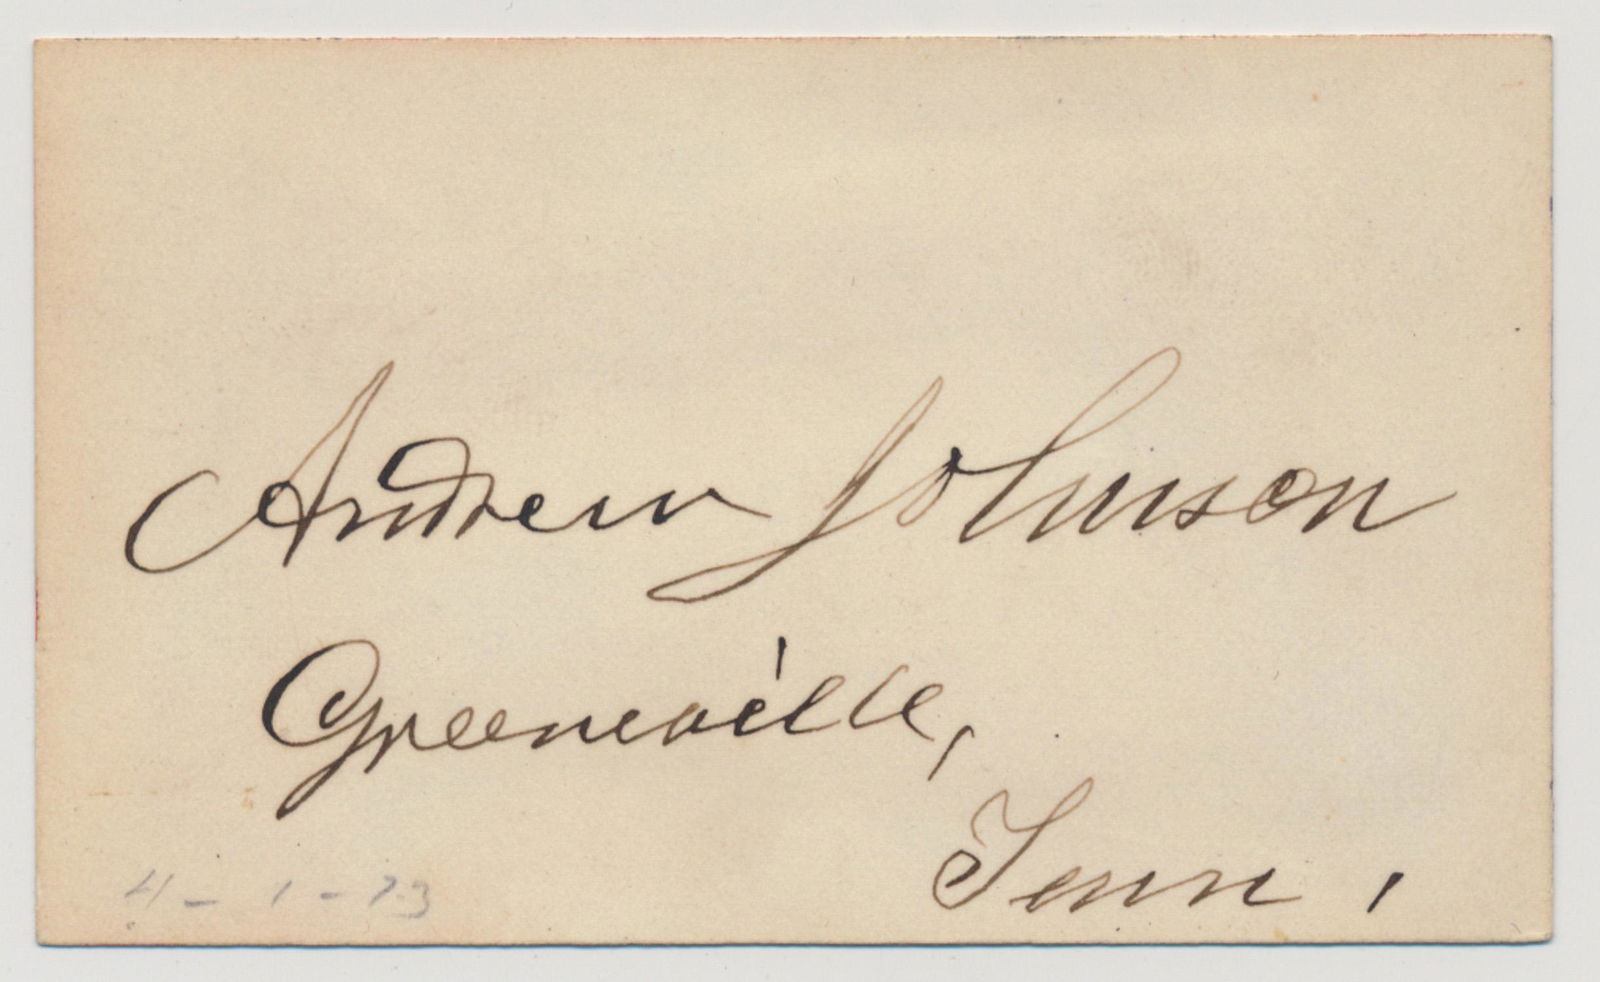 Andrew Johnson
Greeneville,
Tenn,
4-1-73